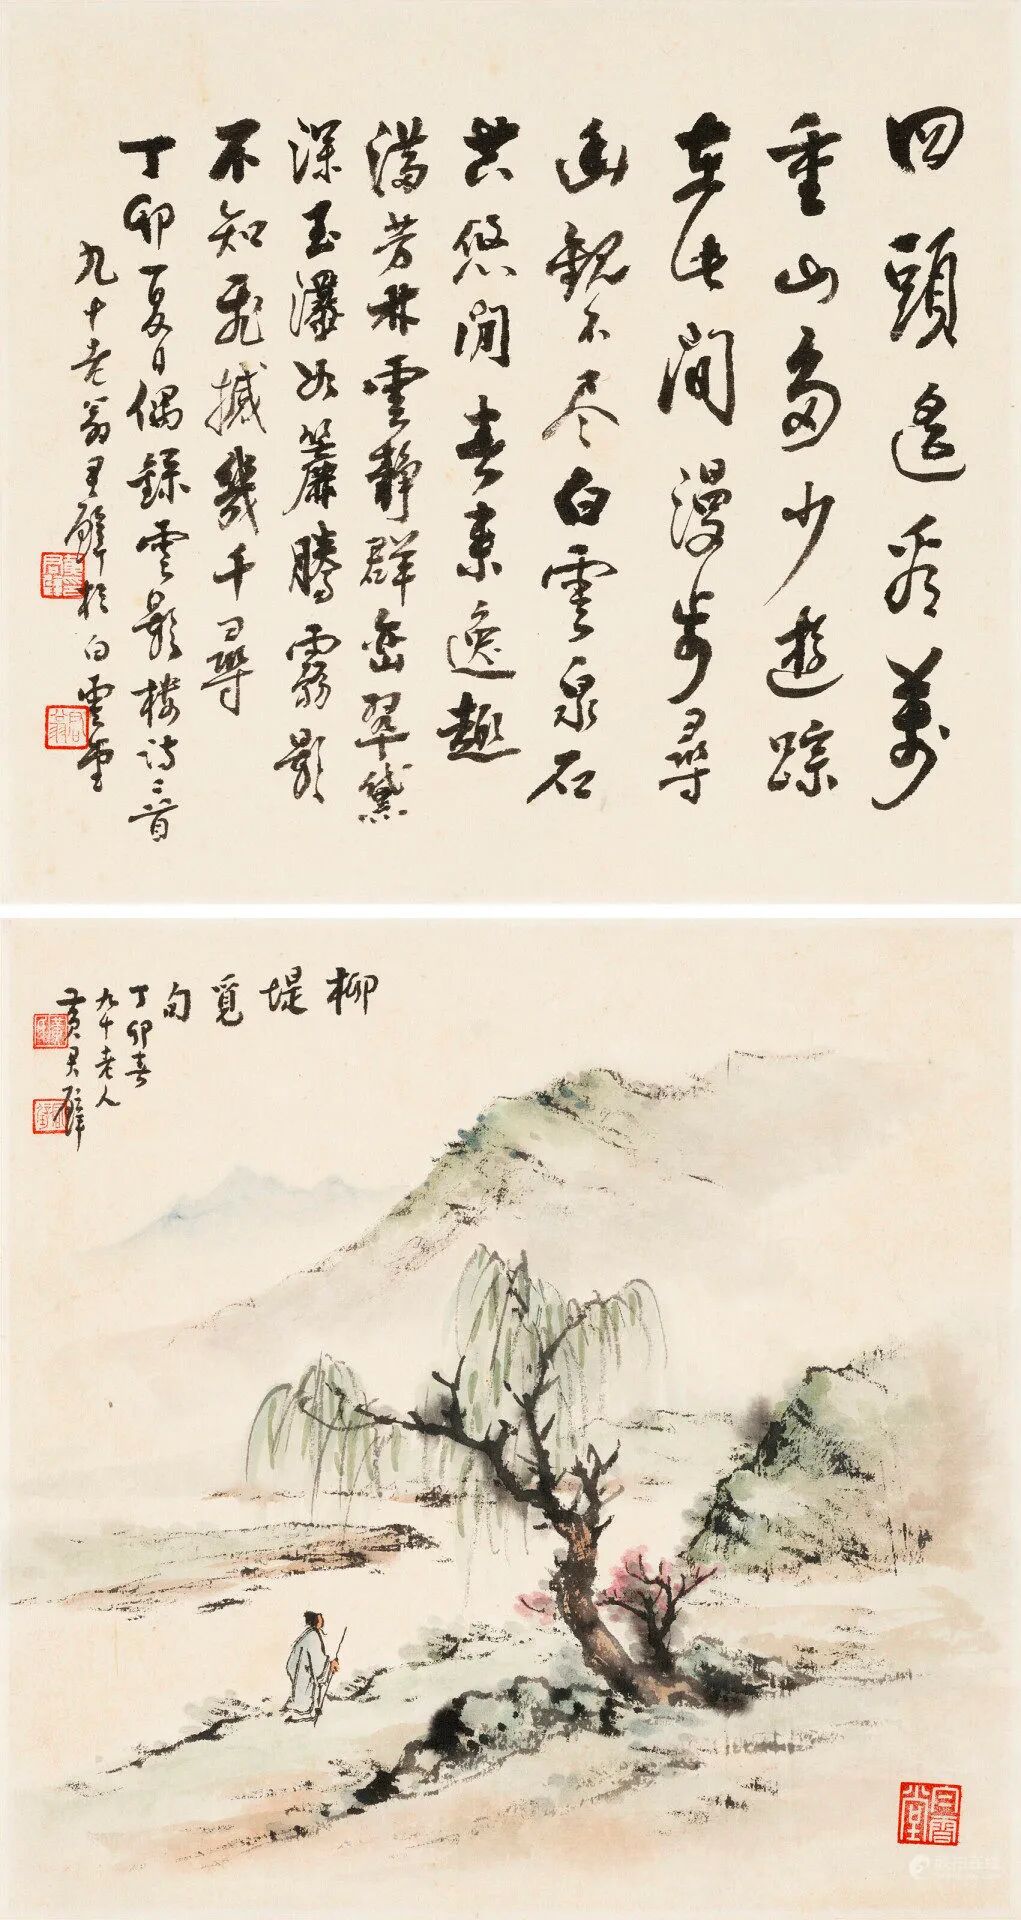 回頭遙看萬
重山多少遊踪
在此間漫步尋
幽觀不尽白雲泉石
共悠閒春來逸趣
滿芳林雲靜群峦翠黛
深玉瀑如簾騰霧影
不知飛撼幾千尋
丁卯夏日偶錄雲影楼詩二首
九十老翁君璧於白雲堂
柳堤覓句
丁卯春
九十老人
黃君璧
白雲堂